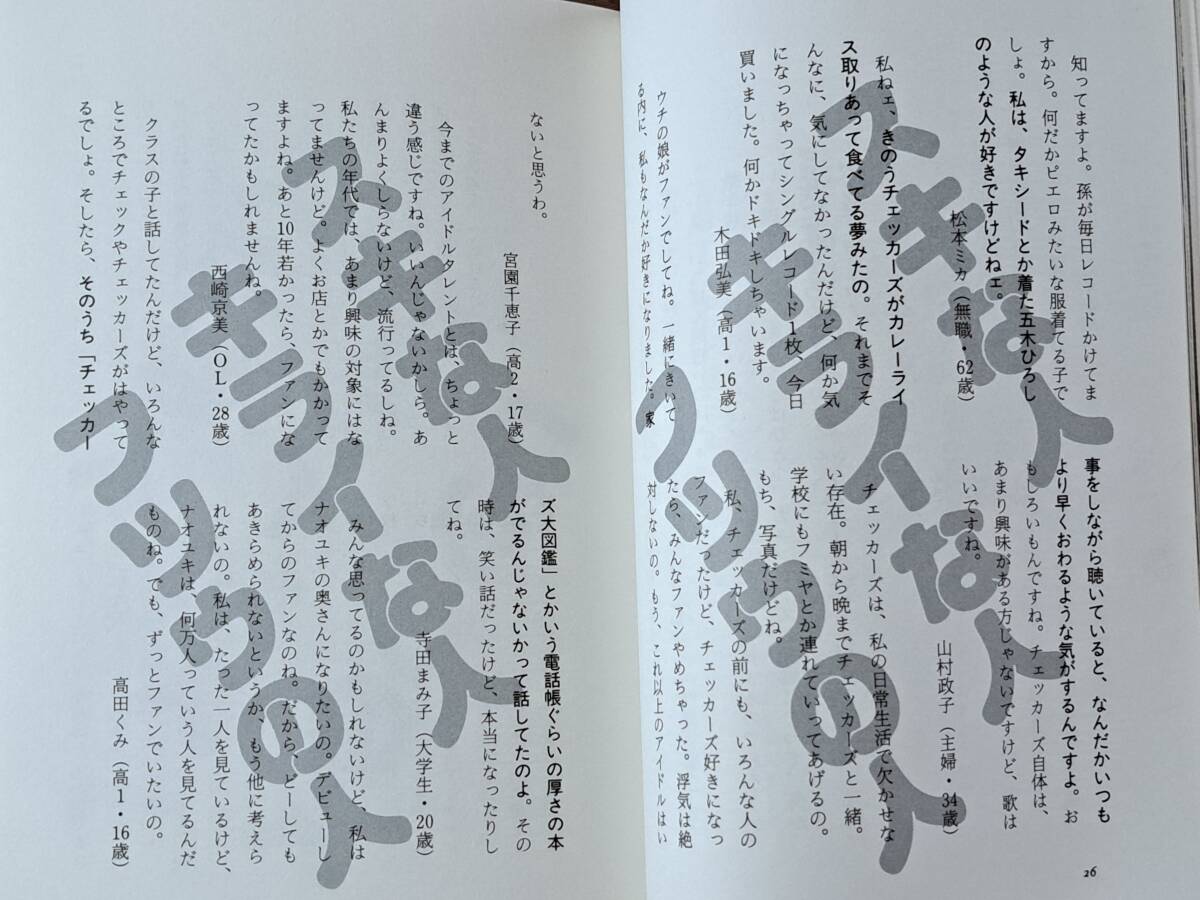 知ってますよ。孫が毎日レコードかけてま
すから。何だかピエロみたいな服着てる子で
しょ。私は、タキシードとか着た五木ひろし
のような人が好きですけどねェ。
松本ミカ（無職・62歳）
私ねェ、きのうチェッカーズがカレーライ
ス取りあって食べてる夢みたの。それまでそ
んなに、気にしてなかったんだけど、何か気
になっちゃってシングルレコード1枚、今日
買いました。何かドキドキしちゃいます。
木田弘美（高1・16歳）
ウチの娘がファンでしてね。一緒にきいて
る内に、私もなんだか好きになりました。家
事をしながら聴いていると、なんだかいつも
より早くおわるような気がするんですよ。お
もしろいもんですね。チェッカーズ自体は、
あまり興味がある方じゃないですけど、歌は
いいですね。
山村政子（主婦・34歳）
チェッカーズは、私の日常生活で欠かせな
い存在。朝から晩までチェッカーズと一緒。
学校にもフミヤとか連れていってあげるの。
もち、写真だけどね。
私、チェッカーズの前にも、いろんな人の
ファンだったけど、チェッカーズ好きになっ
たら、みんなファンやめちゃった。浮気は絶
対しないの。もう、これ以上のアイドルはい
スキな人
キライな人
フツウの人
26
ないと思うわ。
宮園千恵子（高2・17歳）
今までのアイドルタレントとは、ちょっと
違う感じですね。いいんじゃないかしら。あ
んまりよくしらないけど、流行ってるしね。
私たちの年代では、あまり興味の対象にはな
ってませんけど。よくお店とかでもかかって
ますよね。あと10年若かったら、ファンにな
ってたかもしれませんね。
西崎京美（OL・28歳）
クラスの子と話してたんだけど、いろんな
ところでチェックやチェッカーズがはやって
るでしょ。そしたら、そのうち「チェッカー
ズ大図鑑」とかいう電話帳ぐらいの厚さの本
がでるんじゃないかって話してたのよ。その
時は、笑い話だったけど、本当になったりし
てね。
寺田まみ子（大学生・20歳）
みんな思ってるのかもしれないけど、私は
ナオユキの奥さんになりたいの。デビューし
てからのファンなのね。だから、どーしても
あきらめられないというか、もう他に考えら
れないの。私は、たった一人を見ているけど、
ナオユキは、何万人っていう人を見てるんだ
ものね。でも、ずっとファンでいたいの。
高田くみ（高1・16歳）
スキな人
キライな人
フツウの人